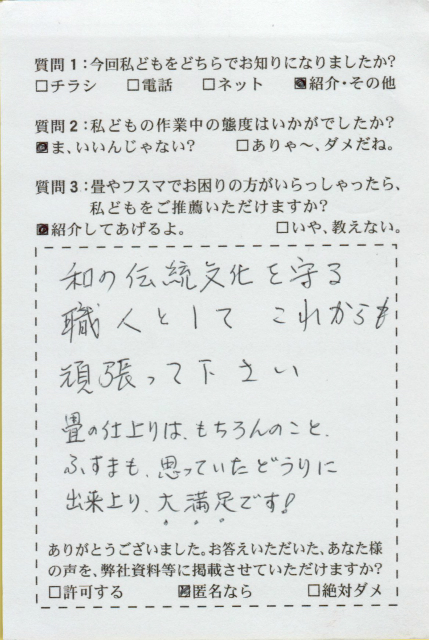 質問1:今回私どもをどちらでお知りになりましたか?
□チラシ □電話 □ネット ☑紹介・その他
質問2:私どもの作業中の態度はいかがでしたか?
☑ま、いいんじゃない? □ありゃ〜、ダメだね。
質問3:畳やフスマでお困りの方がいらっしゃったら、
私どもをご推薦いただけますか?
☑紹介してあげるよ。 □いや、教えない。
和の伝統文化を守る
職人として これからも
頑張って下さい
畳の仕上りは、もちろんのこと、
ふすまも、思っていたどうりに
出来上り、大満足です!
ありがとうございました。お答えいただいた、あなた様
の声を、弊社資料等に掲載させていただけますか?
□許可する ☑匿名なら □絶対ダメ